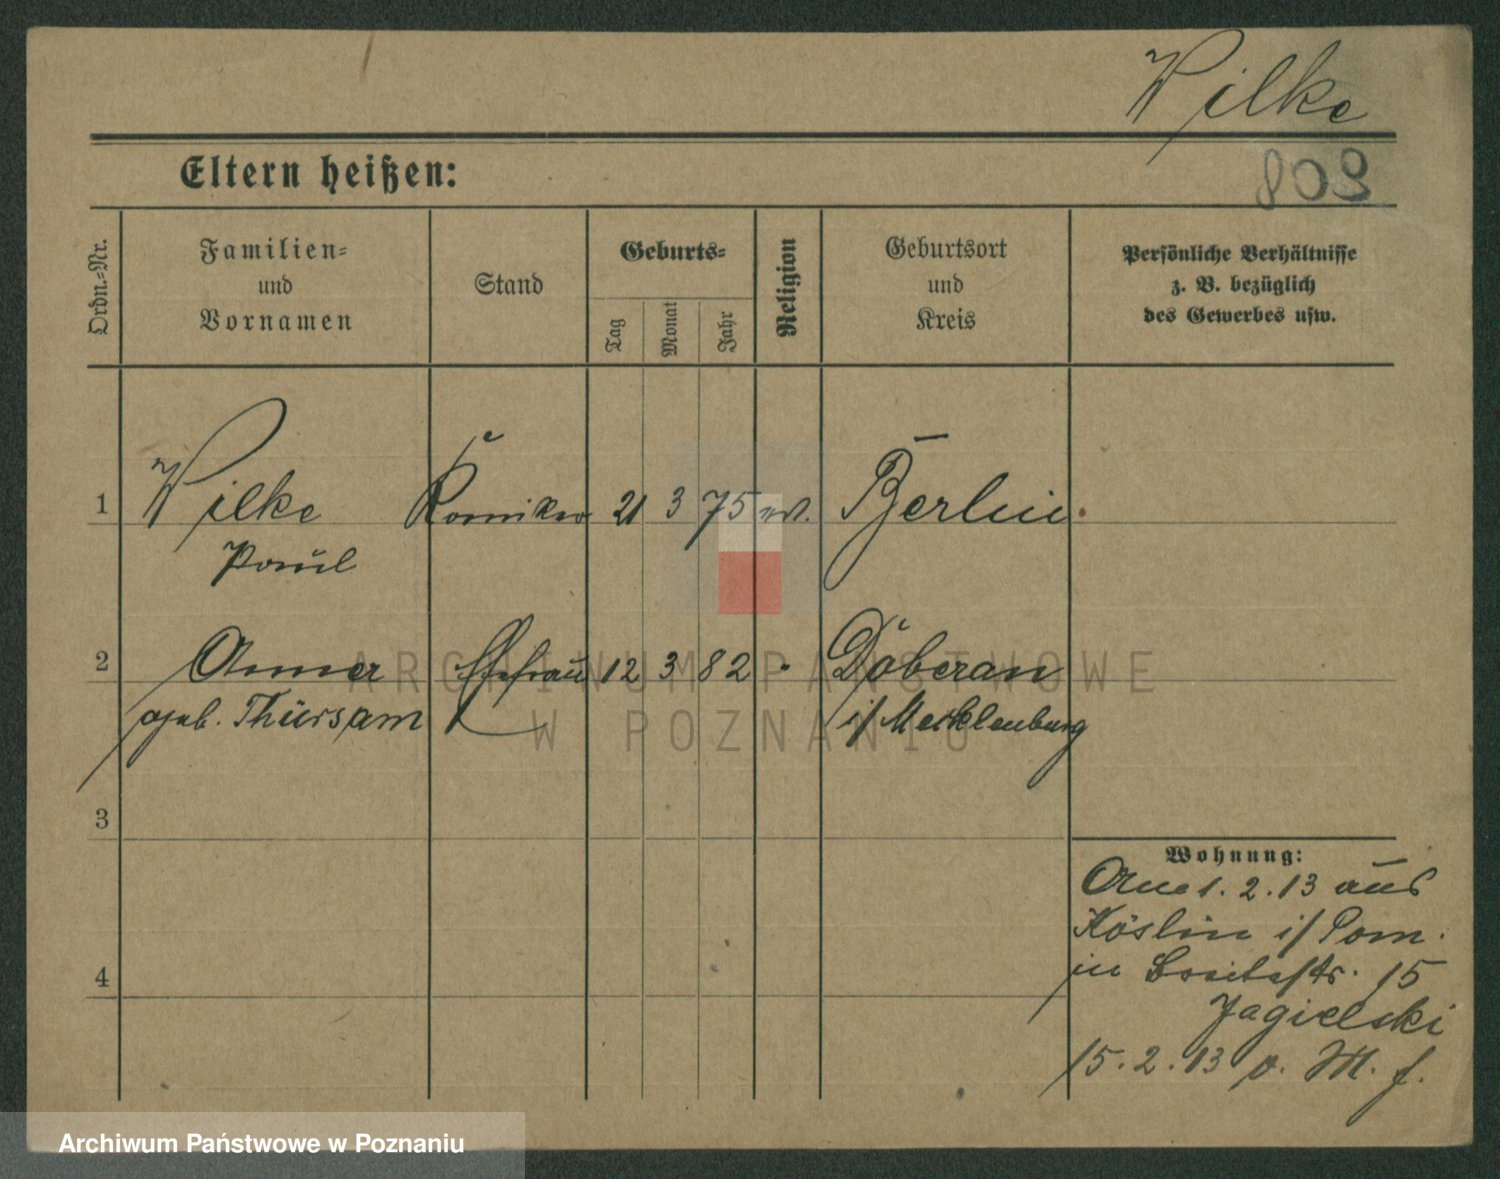 Wilke
809
Eltern heißen:
Ordn.-Nr.
Familien-
und
Vornamen
Stand
Geburts-
Tag
Monat
Jahr
Religion
Geburtsort
und
Kreis
Persönliche Verhältnisse
z. B. bezüglich
des Gewerbes usw.
1 Wilke Komiker 21 3 75 ev. Berlin
Paul
2 Anna Ehefrau 12 3 82 " Doberan
geb. Thürsam i/ Mecklenburg
3
Wohnung:
1. 2. 13 aus
Köslin i/ Pom.
4 in Breitestr. 15
Jagielski
15. 2. 13 v. M. f.
ARCHIWUM PAŃSTWOWE
W POZNANIU
Archiwum Państwowe w Poznaniu